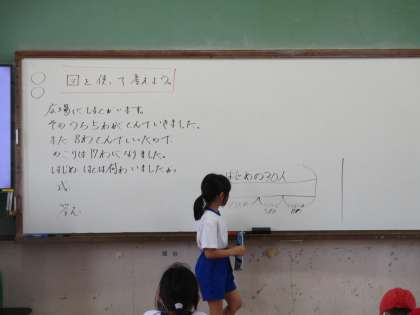 図を使って考えよう。
広場にはとがいます。
そのうち5わがとんでいきました。
また8わとんでいったので
のこりは17わになりました。
はじめ はとは何わいましたか。
式
答え
はじめの30人